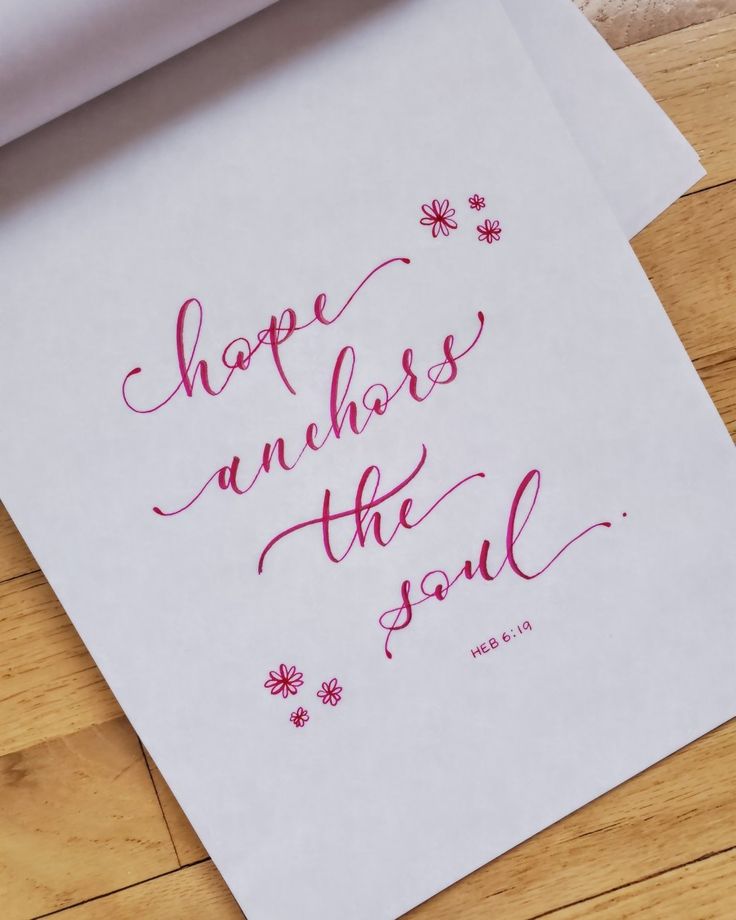 hope
anchors
the
soul.
HEB 6:19